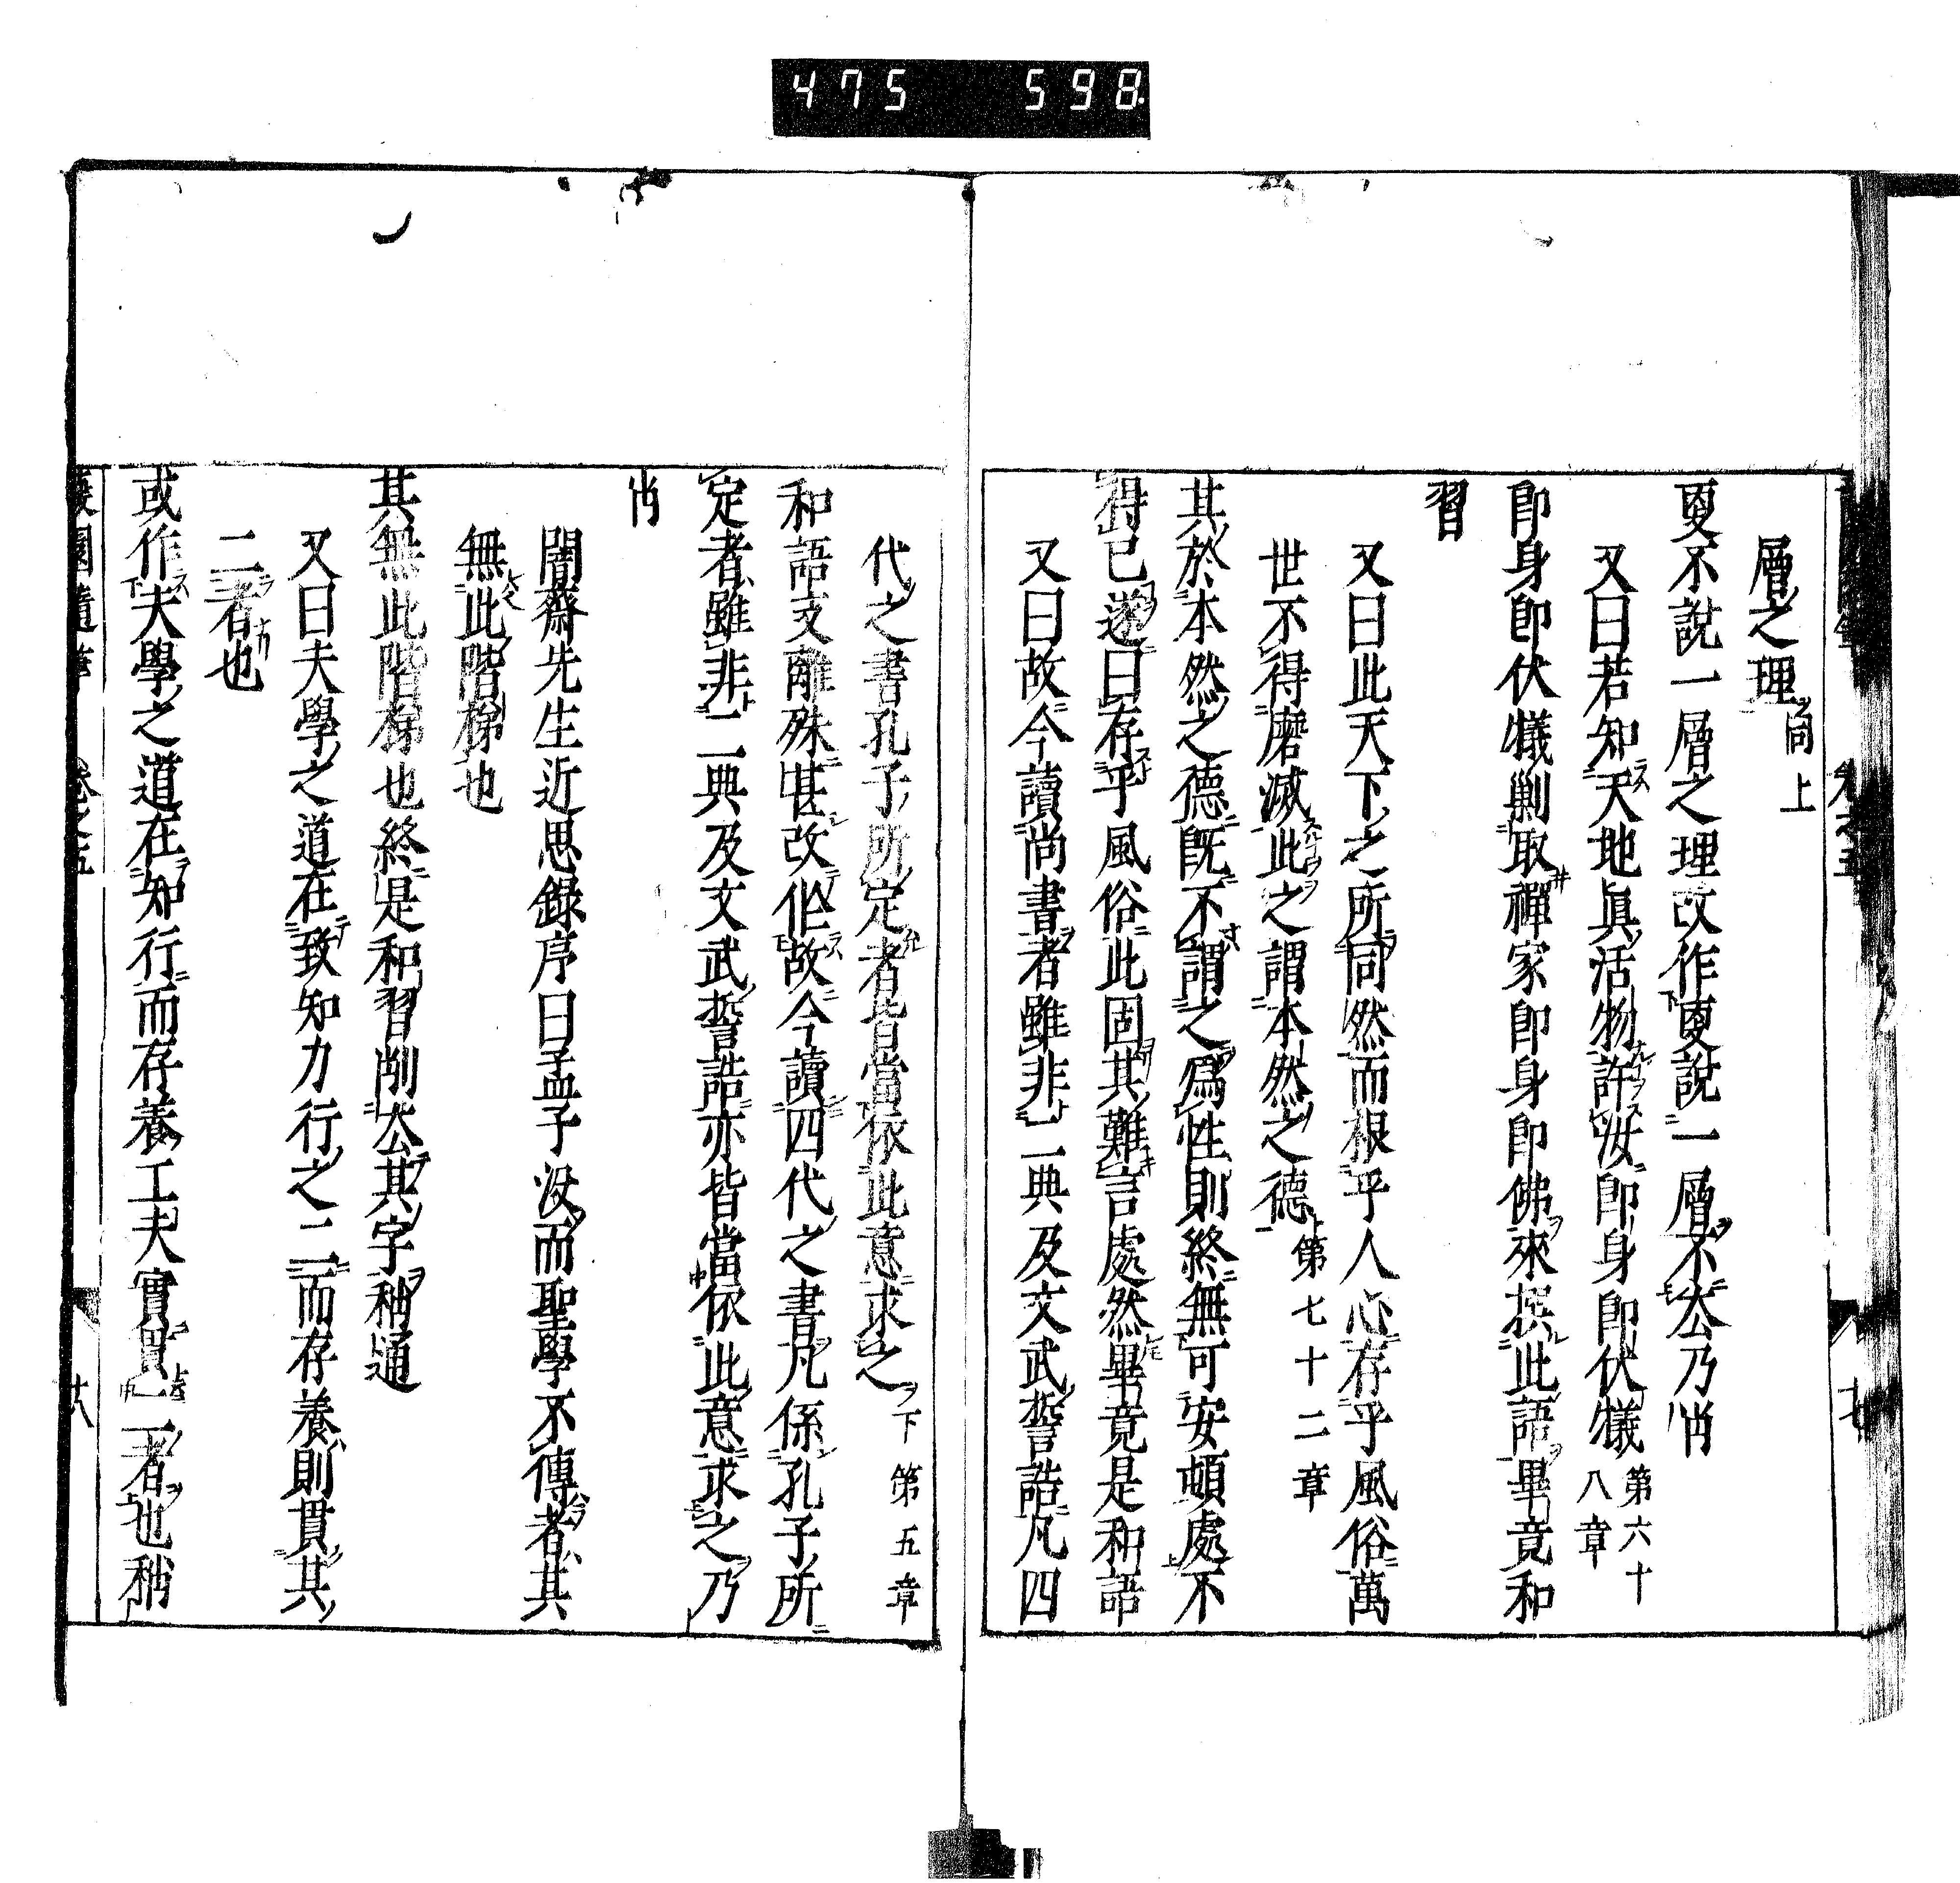 475 598
層之理同上
更不說一層之理改作更說一層不公乃肖
又曰若知天地眞活物許汝卽身卽伏犧第六十八章
卽身卽伏犧剿取禪家卽身卽佛來撰此語畢竟和
習
又曰此天下之所同然而根乎人心存乎風俗萬
世不得磨滅此之謂本然之德第七十二章
其於本然之德既不謂之爲性則終無可安頓處不
得已遂曰存乎風俗此固其難言處然畢竟是和語
又曰故今讀尚書者雖非二典及文武誓誥凡四
代之書孔子所定者皆當依此意求之下第五章
和語支離殊甚改作故今讀四代之書凡係孔子所
定者雖非二典及文武誓誥亦皆當依此意求之乃
肖
闇齋先生近思錄序曰孟子沒而聖學不傳者其
無此階梯也
其無此階梯也終是和習削公其字稍通
又曰夫學之道在致知力行之二而存養則貫其
二者也
或作夫學之道在知行而存養工夫實貫二者也稍
園隨筆 卷之五 廿八